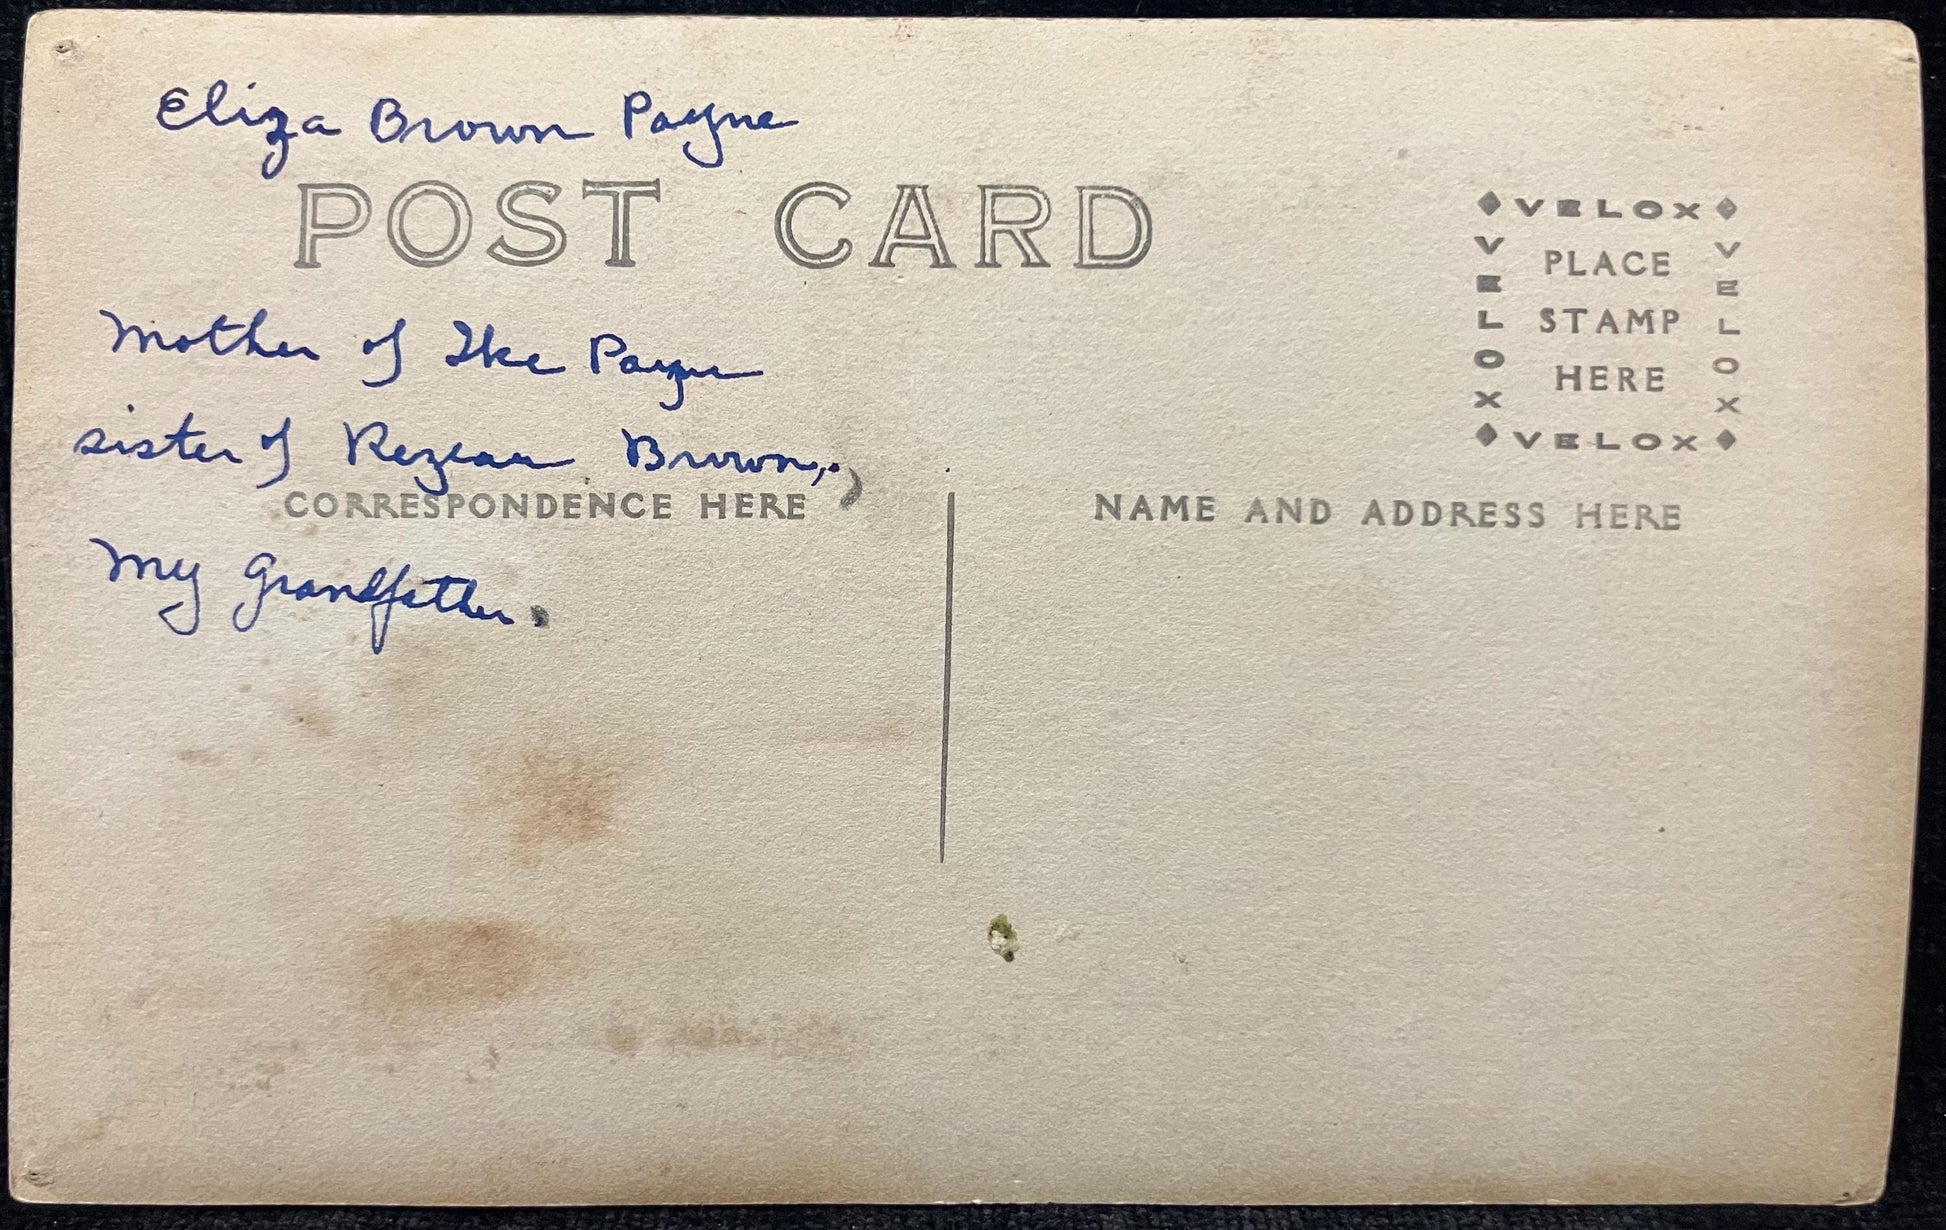 Eliza Brown Payne
POST CARD
Mother of Ike Payne
sister of Rezeau Brown,
CORRESPONDENCE HERE
My grandfather.
VELOX
VELOX
PLACE
STAMP
HERE
VELOX
VELOX
NAME AND ADDRESS HERE